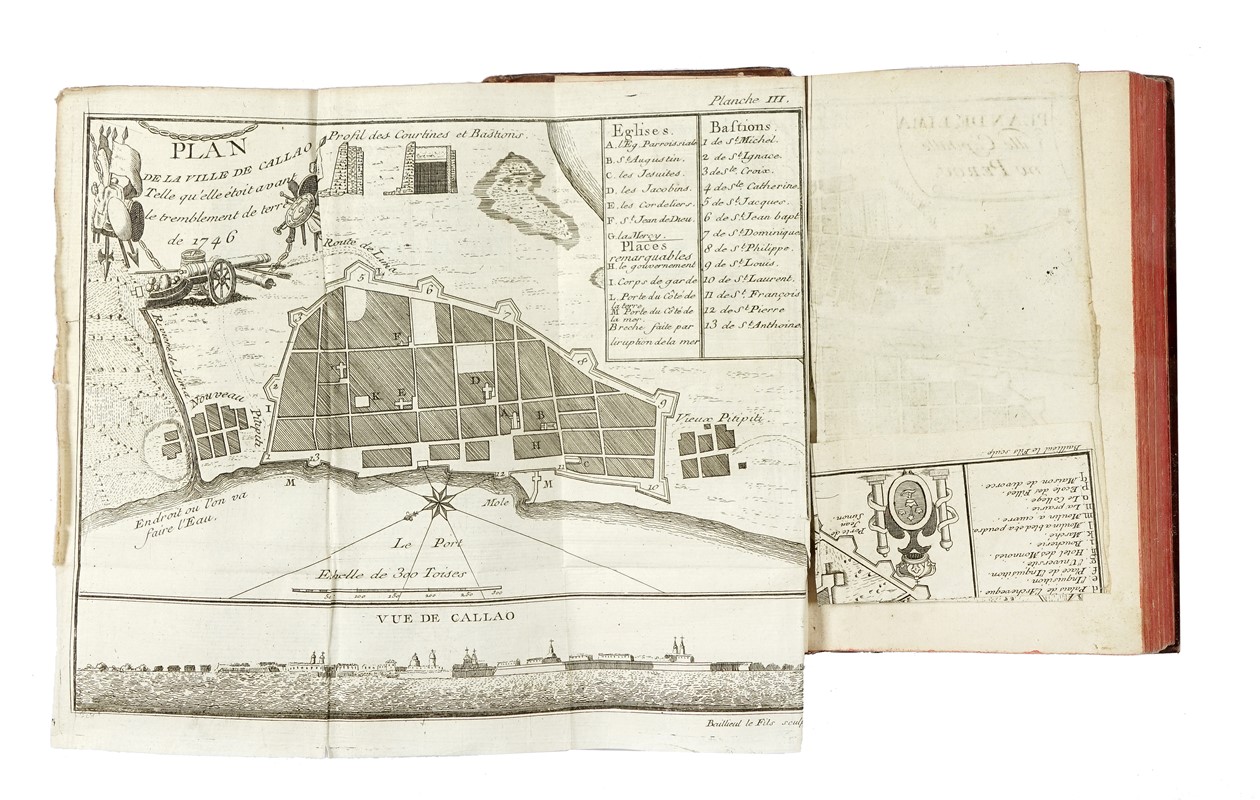 Planche III.
PLAN
DE LA VILLE DE CALLAO
Telle qu'elle étoit avant
le tremblement de terre
de 1746
Profil des Courtines et Bastions.
Eglises.
A. l'Eg. Parroissiale
B. St. Augustin.
C. les Jesuites.
D. les Jacobins.
E. les Cordeliers.
F. St. Jean de Dieu.
G. la Mercy.
Places
remarquables
H. le gouvernement
I. Corps de garde
L. Porte du Côté de
la terre
M Porte du Côté de
la mer
Breche faite par
liruption de la mer
Bastions.
1 de St. Michel.
2 de St. Ignace.
3 de Ste. Croix.
4 de Ste Catherine.
5 de St. Jacques.
6 de St. Jean bapt.
7 de St. Dominique
8 de St. Philippe.
9 de St. Louis.
10 de St. Laurent.
11 de St. François
12 de St Pierre
13 de St. Anthoine
Route de Lima
L
5
6
7
8
9
3
2
1
F
K
E
D
A
B
H
C
G
Route de Lima
Nouveau
Pitipiti
Vieux Pitipiti.
1
13
12
11
10
M
M
Mole
Endroit ou l'on va
faire l'Eau.
Le Port
Echelle de 300 Toises
50 100 150 200 250 300
VUE DE CALLAO
Baillieul le Fils sculp
PLAN DE LIMA
Ville Capitale
DU PEROU
Baillieul le Fils sculp
d Palais de l'Archeveque.
e l'Inquisition.
f Place de l'Inquisition.
g l'Université.
Hotel des Monnoies.
Boucherie.
k Marché.
l Moulin a bled et a poudre
m Moulin a cuivre.
n La prairie.
o Le College.
p Ecole des Filles.
q Maison de divorce.
Porte de
Jean
Simon.